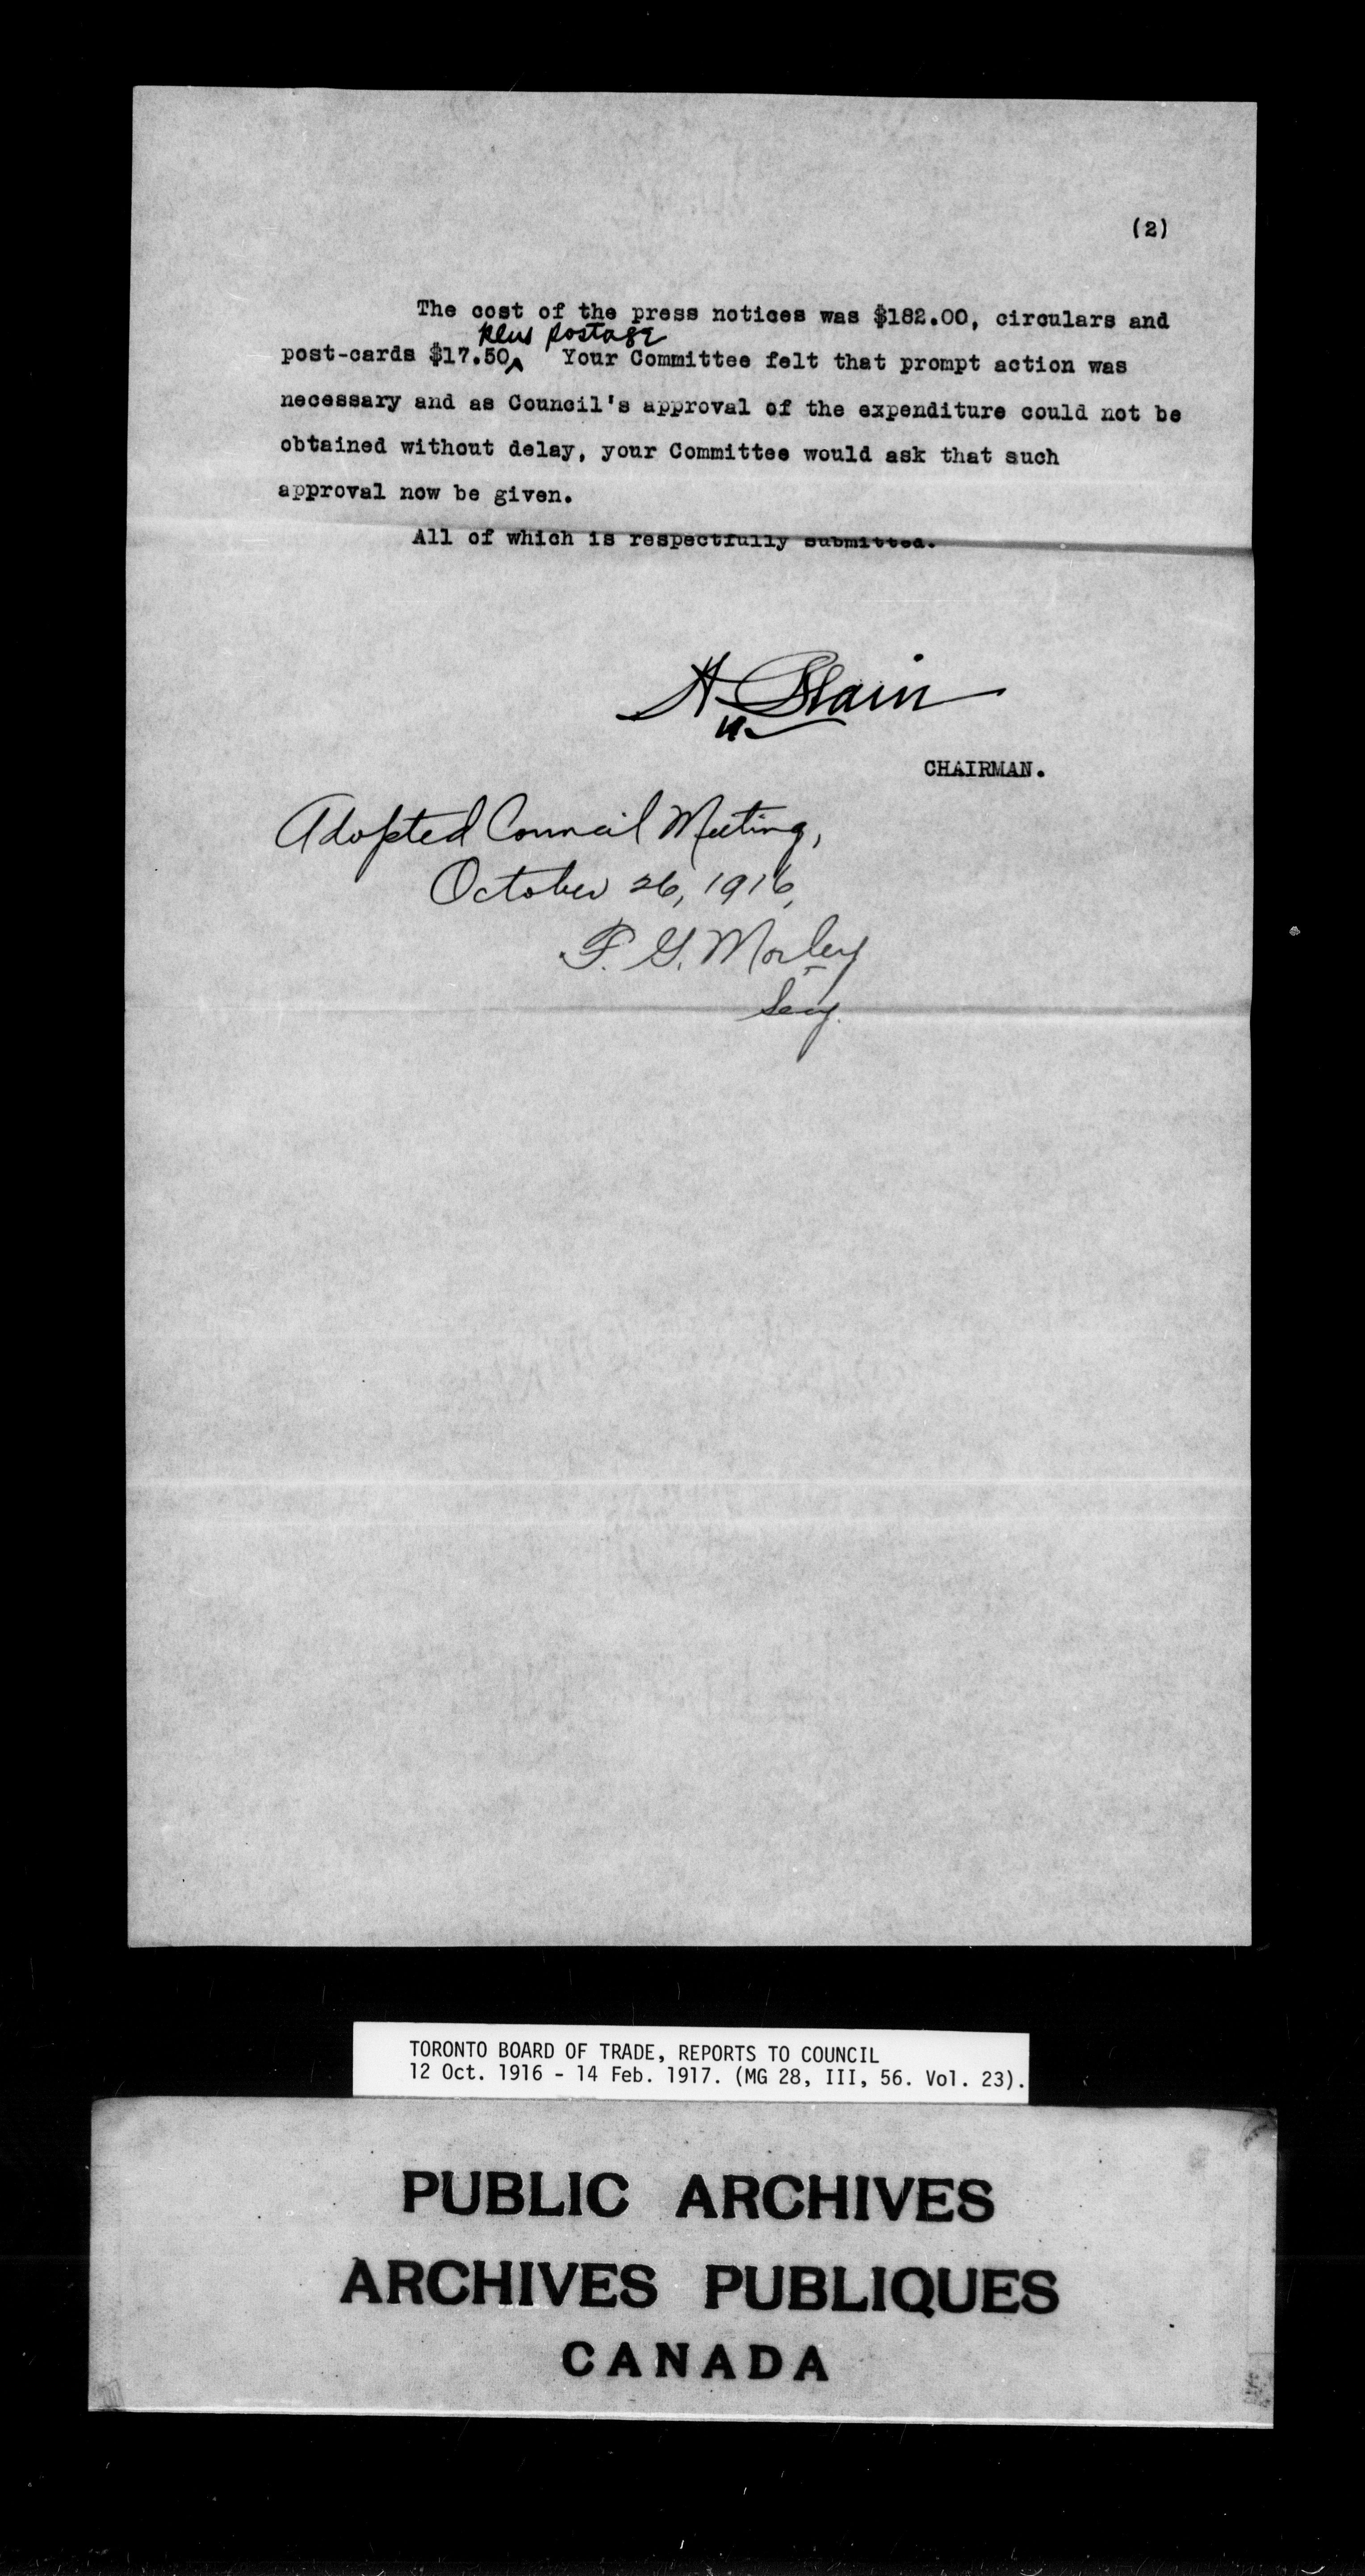 (2)
The cost of the press notices was $182.00, circulars and
plus postage
post-cards $17.50^ Your Committee felt that prompt action was
necessary and as Council's approval of the expenditure could not be
obtained without delay, your Committee would ask that such
approval now be given.
All of which is respectfully submitted.
H. Blain
CHAIRMAN.
Adopted Council Meeting,
October 26, 1916,
F. G. Morley
Secy.
TORONTO BOARD OF TRADE, REPORTS TO COUNCIL
12 Oct. 1916 - 14 Feb. 1917. (MG 28, III, 56. Vol. 23).
PUBLIC ARCHIVES
ARCHIVES PUBLIQUES
CANADA